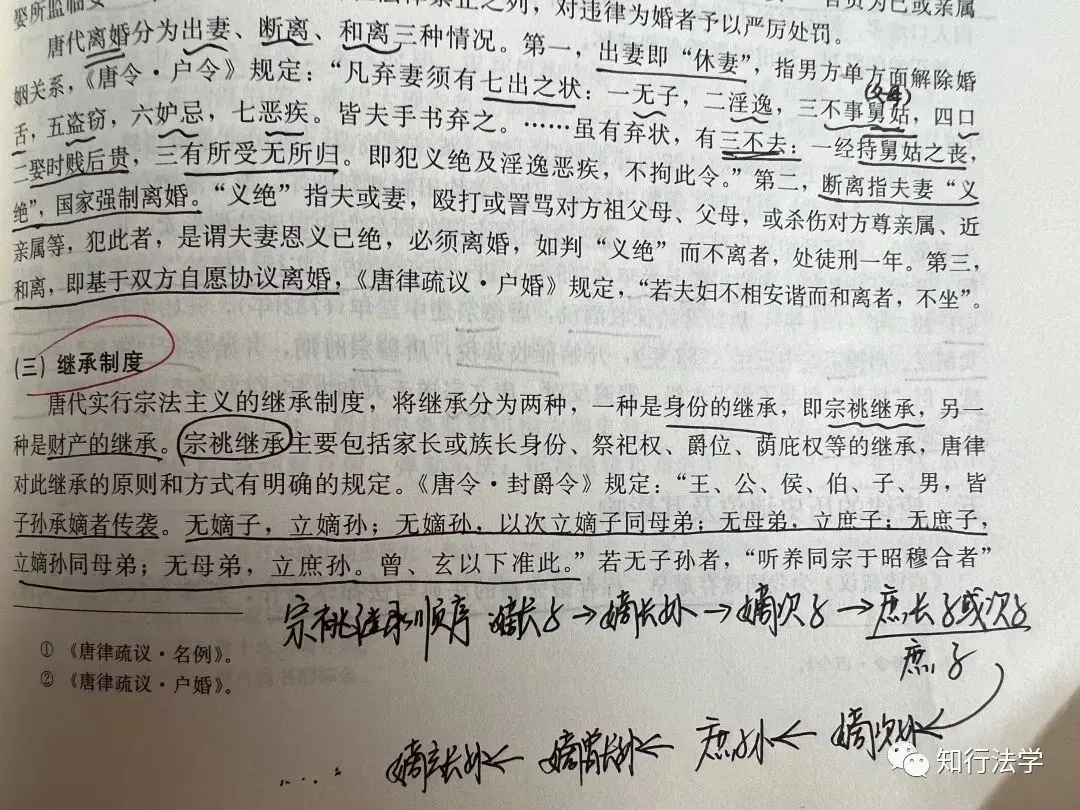 娶所监临女
对违律为婚者予以严厉处罚。
唐代离婚分为出妻、断离、和离三种情况。第一，出妻即“休妻”，指男方单方面解除婚
姻关系，《唐令·户令》规定：“凡弃妻须有七出之状：一无子，二淫逸，三不事舅姑，四口
(父母)
舌，五盗窃，六妒忌，七恶疾。皆夫手书弃之。……虽有弃状，有三不去：一经持舅姑之丧，
二娶时贱后贵，三有所受无所归。即犯义绝及淫逸恶疾，不拘此令。”第二，断离指夫妻“义
绝”，国家强制离婚。“义绝”指夫或妻，殴打或詈骂对方祖父母、父母，或杀伤对方尊亲属、近
亲属等，犯此者，是谓夫妻恩义已绝，必须离婚，如判“义绝”而不离者，处徒刑一年。第三，
和离，即基于双方自愿协议离婚，《唐律疏议·户婚》规定，“若夫妇不相安谐而和离者，不坐”。
(三) 继承制度
唐代实行宗法主义的继承制度，将继承分为两种，一种是身份的继承，即宗祧继承，另一
种是财产的继承。宗祧继承主要包括家长或族长身份、祭祀权、爵位、荫庇权等的继承，唐律
对此继承的原则和方式有明确的规定。《唐令·封爵令》规定：“王、公、侯、伯、子、男，皆
子孙承嫡者传袭。无嫡子，立嫡孙；无嫡孙，以次立嫡子同母弟；无母弟，立庶子；无庶子，
立嫡孙同母弟；无母弟，立庶孙。曾、玄以下准此。”若无子孙者，“听养同宗于昭穆合者”
宗祧继承顺序 嫡长子→嫡长孙→嫡次子→庶长子或次子
庶子
① 《唐律疏议·名例》。
② 《唐律疏议·户婚》。
嫡玄长孙←嫡曾长孙←庶子孙←嫡次孙←
知行法学